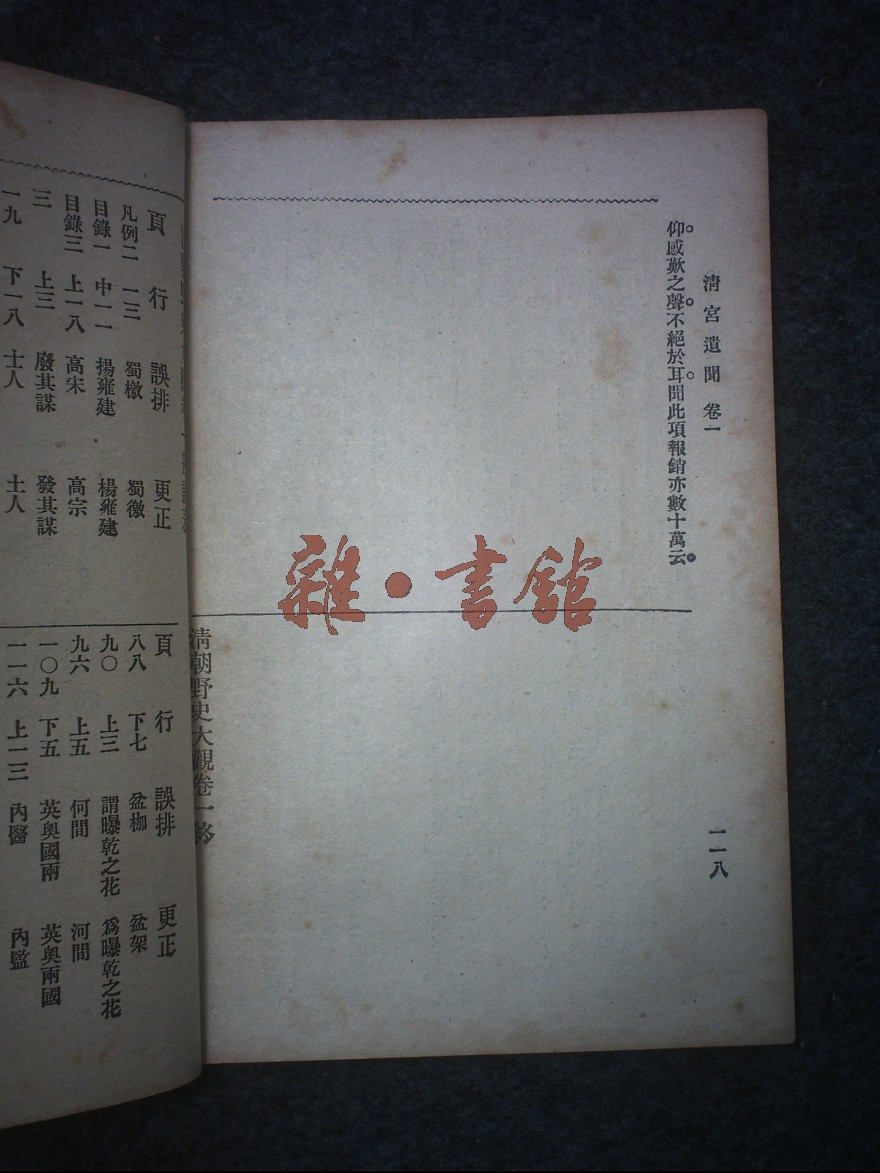 清宮遺聞 卷一
一一八
仰感歎之聲不絕於耳聞此項報銷亦數十萬云
清朝野史大觀卷一終
雜·書館
頁 行 誤排 更正
凡例二 一三 蜀檄 蜀徼
目錄一 中一一 揚雍建 楊雍建
目錄三 上一八 高宋 高宗
三 上三 廢其謀 發其謀
一九 下一八 士人 土人
頁 行 誤排 更正
八八 下七 盆枷 盆架
九〇 上三 謂曝乾之花 爲曝乾之花
九六 上五 何間 河間
一〇九 下五 英奧國兩 英奧兩國
一一六 上一三 內醫 內監